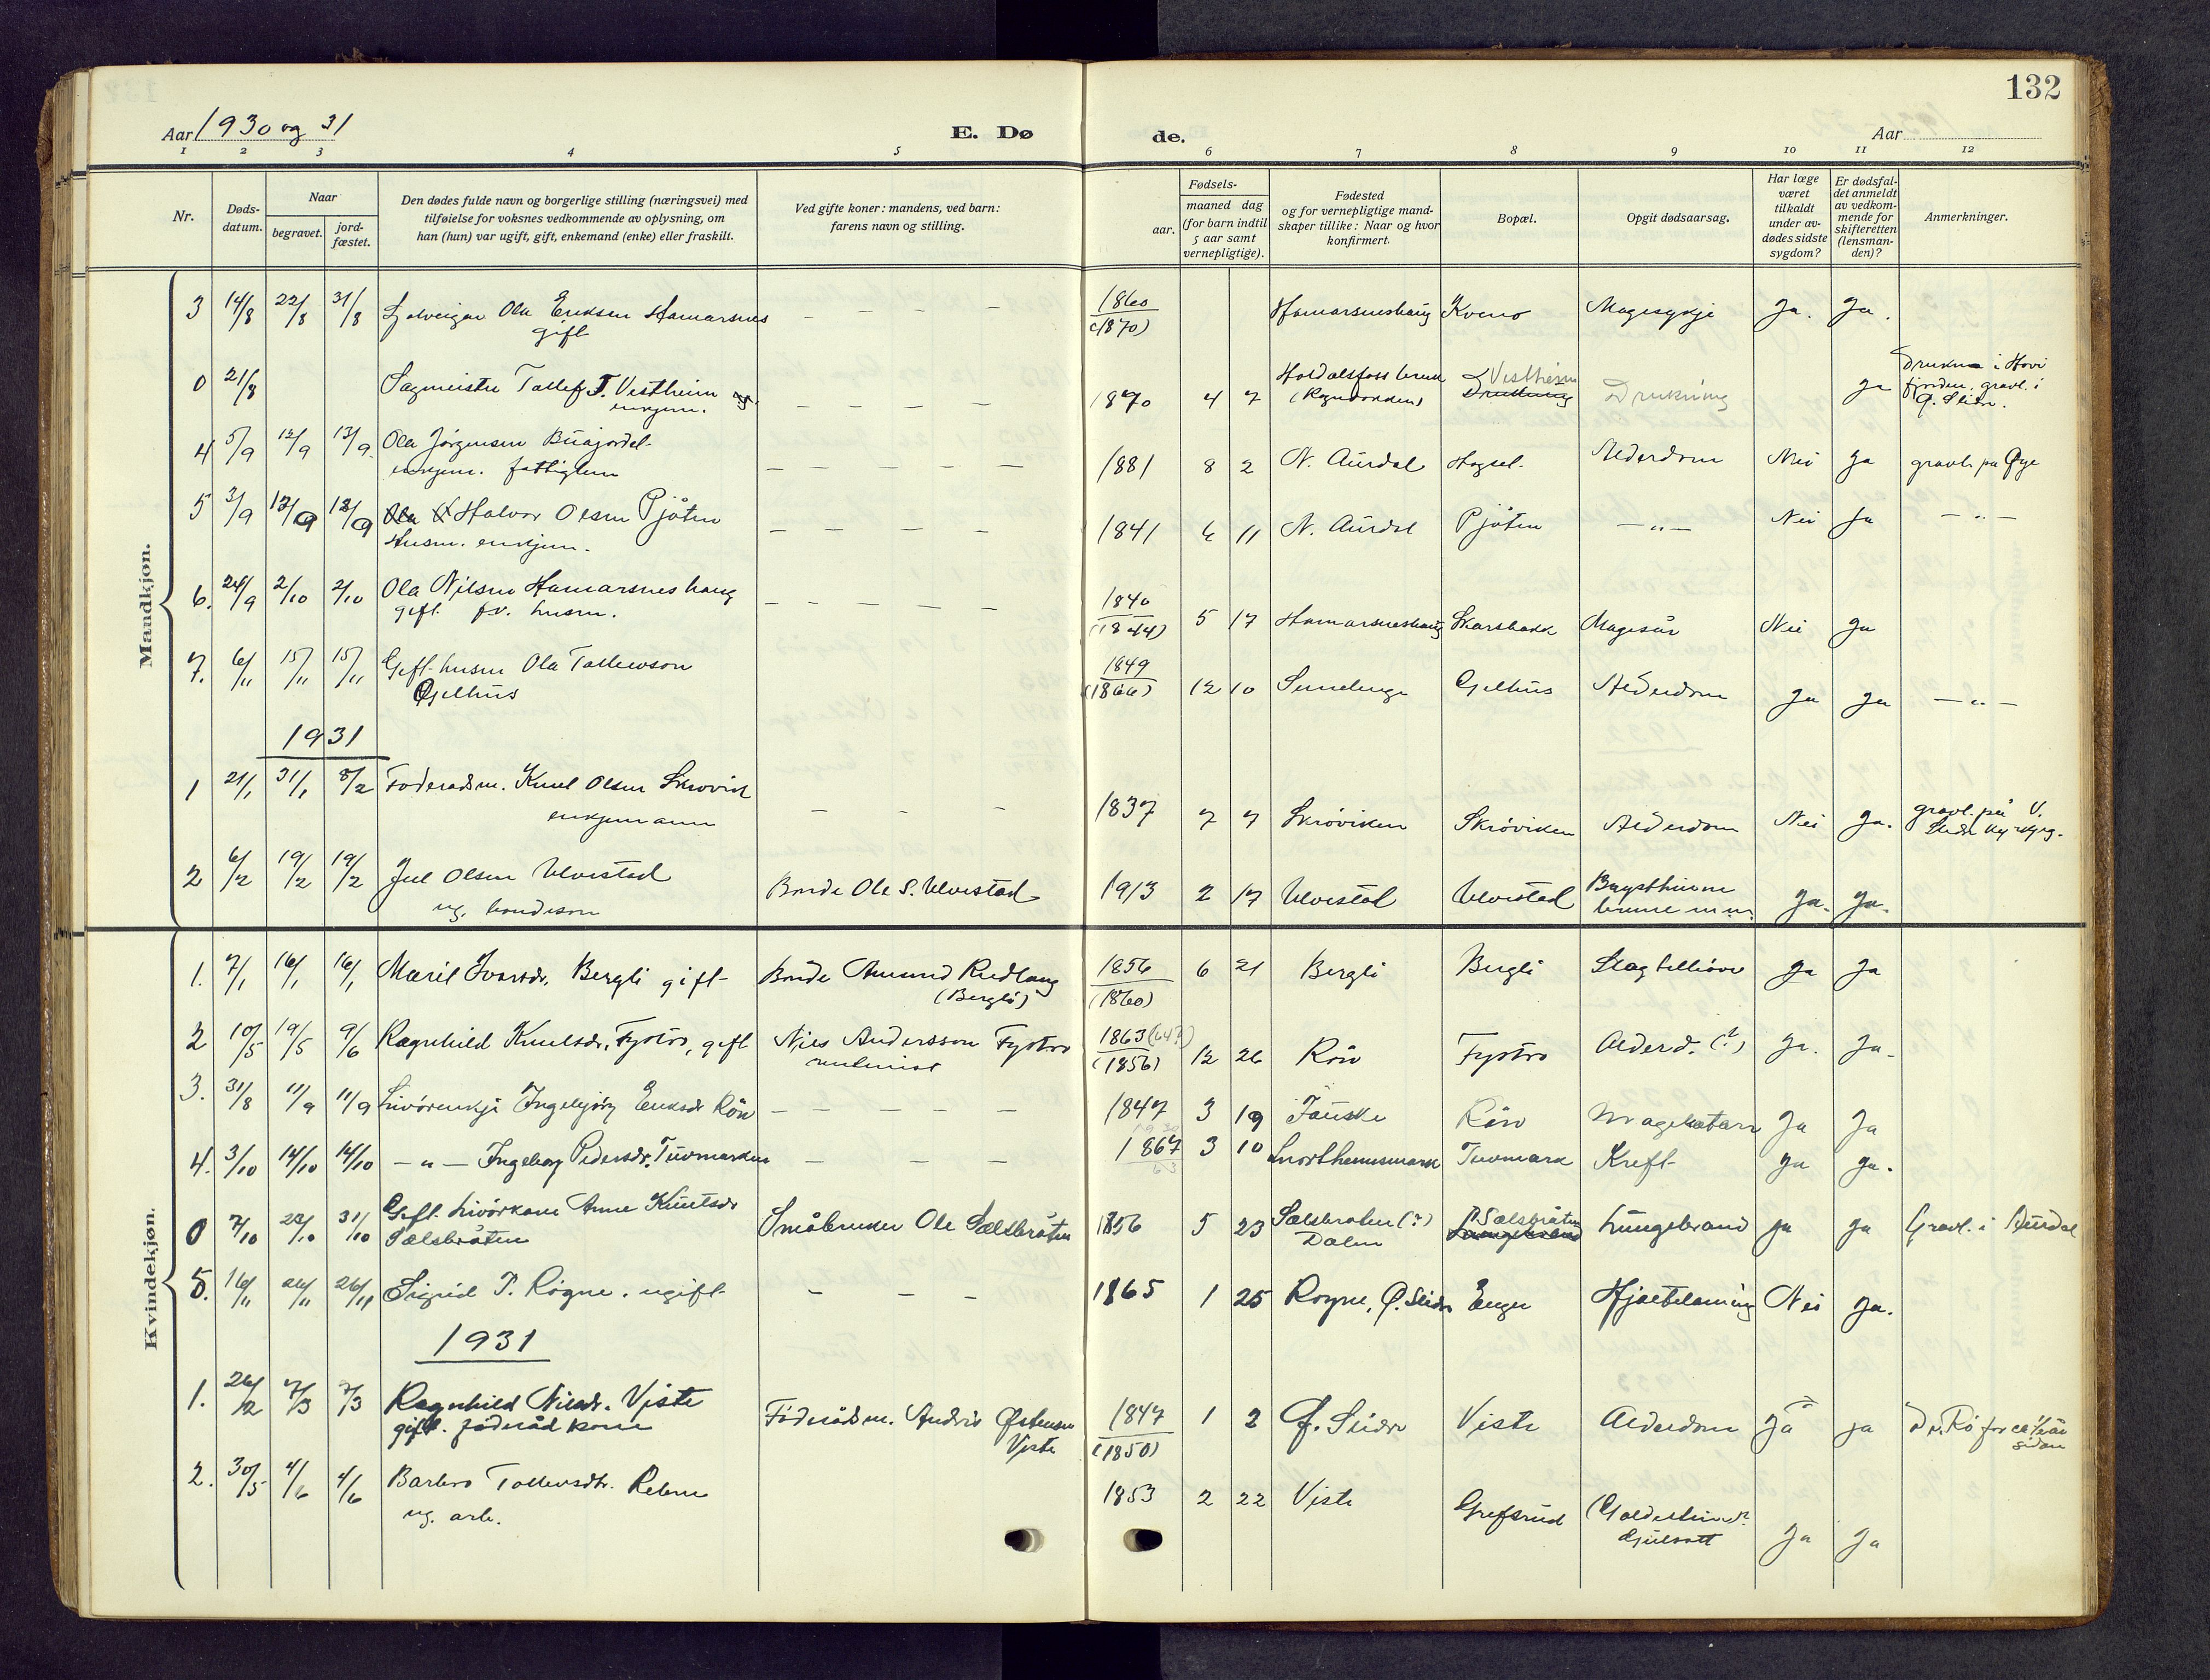 132
Aar 1930 og 31
E. Dø de.
Aar
1 2 3 4 5 6 7 8 9 10 11 12
Nr.
Døds-
datum.
Naar
begravet.
jord-
fæstet.
Den dødes fulde navn og borgerlige stilling (næringsvei) med
tilføielse for voksnes vedkommende av oplysning, om
han (hun) var ugift, gift, enkemand (enke) eller fraskilt.
Ved gifte koner: mandens, ved barn:
farens navn og stilling.
Fødsels-
aar.
maaned dag
(for barn indtil
5 aar samt
vernepligtige).
Fødested
og for vernepligtige mand-
skaper tillike: Naar og hvor
konfirmert.
Bopæl.
Opgit dødsaarsag.
Har læge
været
tilkaldt
under av-
dødes sidste
sygdom?
Er dødsfal-
det anmeldt
av vedkom-
mende for
skifteretten
(lensman-
den)?
Anmerkninger.
Mandkjøn.
3 14/8 22/8 31/8 Sjolveigar Ola Eriksen Hamarsnes — — — — 1860 Hamarsneshaug Kveno Magesykje Ja. Ja.
gift (1870)
0 21/8 Sagmeister Tollef T. Vestheim — — — — 1870 4 7 Vestheim Drukning ja
enkjem.
Drukna i Hovi
fjorden, gravl. i
Ø. Slidre.
4 5/9 12/9 13/9 Ola Jørgensen Buajordet — — — — — 1881 8 2 N. Aurdal Alderdom Nei Ja gravl. på Øye
enkjem. fattiglem
5 3/9 13/9 13/9 Halvor Olsen Pjåten — — — — 1841 6 11 N. Aurdal Pjåten — „ — Nei Ja — „ —
Husm. enkjem.
6. 24/9 2/10 2/10 Ola Nilsen Hamarsneshaug — — — — — 1840 5 17 Hamarsneshaug Skarsbakk Magesår Nei Ja
gift fv. husm. (1844)
7. 6/11 15/11 15/11 Gift husm Ola Tollewson 1849 12 10 Gjelhus Alderdom Ja Ja — „ —
Gjelhus (1866)
1931
1 21/1 31/1 8/2 Føderådsm. Knut Olsen Skrøvik — — — 1837 7 7 Skrøviken Skrøviken Alderdom Nei Ja. gravl. på V.
enkjemann Slidre
2 6/2 19/2 19/2 Jul Olsen Ulvestad Bonde Ole S. Ulvestad 1913 2 17 Ulvestad Ulvestad Ja. Ja.
ug. bondeson
Kvindekjøn.
1. 7/1 16/1 16/1 Marit Ivarsdr. Bergli gift Bonde Amund Rudlang 1856 6 21 Bergli Bergli Slagtilhöve Ja Ja
(Bergli) (1860)
2 10/5 19/5 9/6 Ragnhild Knutsdr. Fystro, gift Nils Andersson Fystro 1863 12 26 Røn Fystro Alderd. (?) Ja. Ja.
(1856)
3. 31/8 11/9 11/9 Livørenkje Ingebjørg Eriksdr Røn — — — — — 1847 3 19 Fauske Røn Magekatarr Ja Ja
4. 3/10 14/10 14/10 — „ — Ingeborg Pedersdr. Tuvmarken — — — — 1867 3 10 Tuvmark Kreft Ja Ja.
0 7/10 22/10 31/10 Gift livörkone Anne Knutsdr Småbruker Ole Sælsbråten 1856 5 23 Sælsbråten (?) Sælsbråten Lungebrand Ja Ja Gravl. i Aurdal
Sælsbråten Dalen
5. 16/11 26/11 26/11 Sigrid P. Røgne. ugift — — — 1865 1 25 Rogne, Ø. Slidre Enger Hjartelaming Nei Ja.
1931
1. 26/2 7/3 7/3 Ragnhild Nilsdr. Viste Føderådsm. Andris Østensen 1847 1 2 Ø. Slidre Viste Alderdom Ja ja
gift. føderåd kone Viste (1850)
2. 30/5 4/6 4/6 Barbro Tollevsdtr. Rebne 1853 2 22 Viste Grefsrud Ja Ja
ug. arb. Gulsott